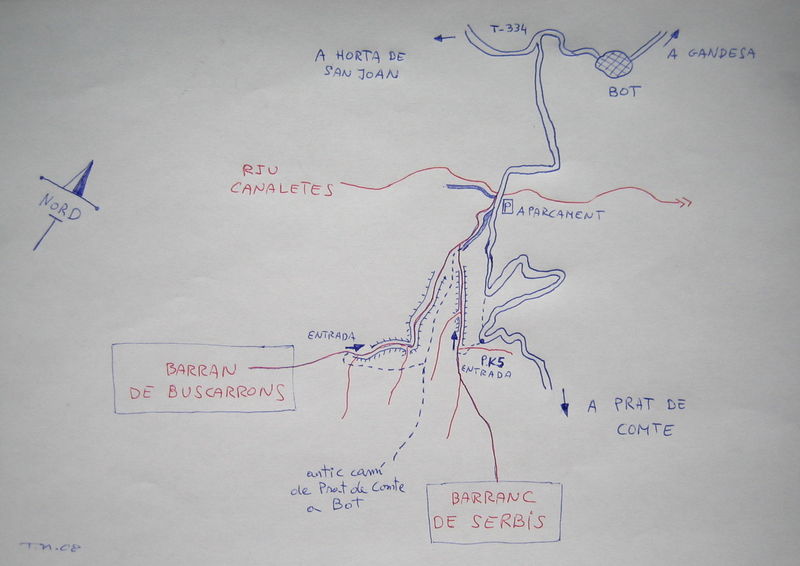 T-334
A HORTA DE
SAN JOAN
A GANDESA
BOT
RIU
CANALETES
NORD
P APARCAMENT
ENTRADA
BARRAN
DE BUSCARRONS
P.K5
ENTRADA
A PRAT DE
COMTE
antic camí
de Prat de Comte
a Bot
BARRANC
DE SERBIS